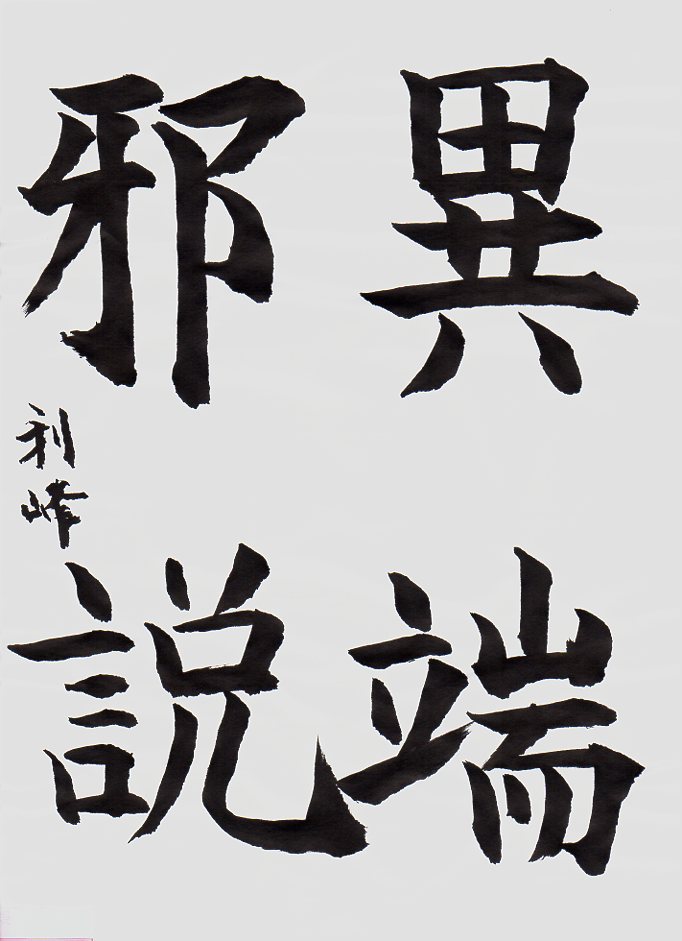 異端
邪説
利峰